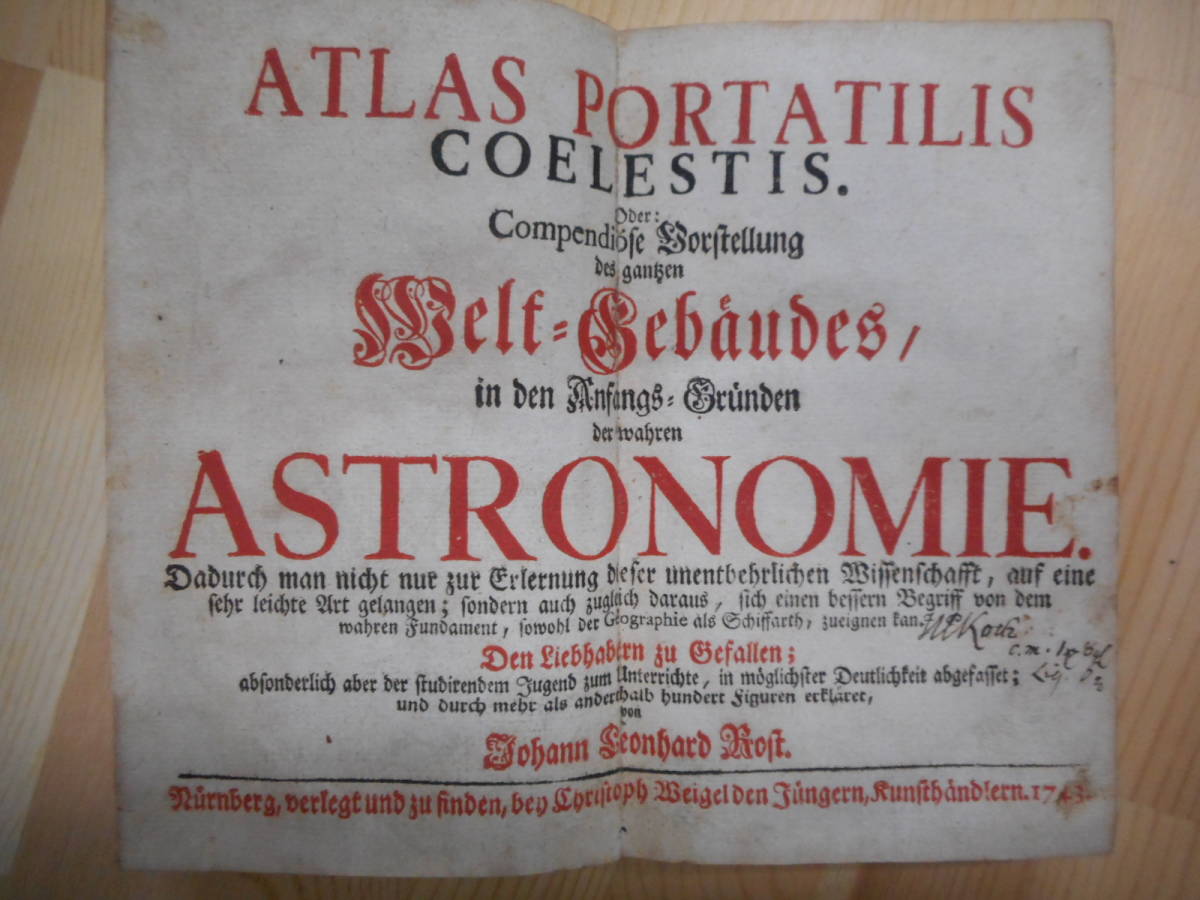 ATLAS PORTATILIS
COELESTIS.
Oder:
Compendiöse Vorstellung
des gantzen
Welt-Gebäudes,
in den Anfangs-Gründen
der wahren
ASTRONOMIE.
Dadurch man nicht nur zur Erlernung dieser unentbehrlichen Wissenschafft, auf eine
sehr leichte Art gelangen; sondern auch zugleich daraus, sich einen bessern Begriff von dem
wahren Fundament, sowohl der Geographie als Schiffarth, zueignen kan.
Koch
c.m.
Den Liebhabern zu Gefallen;
absonderlich aber der studirendem Jugend zum Unterrichte, in möglichster Deutlichkeit abgefasset;
und durch mehr als anderthalb hundert Figuren erkläret,
von
Johann Leonhard Rost.
Nürnberg, verlegt und zu finden, bey Christoph Weigel den Jüngern, Kunsthändlern. 1743.